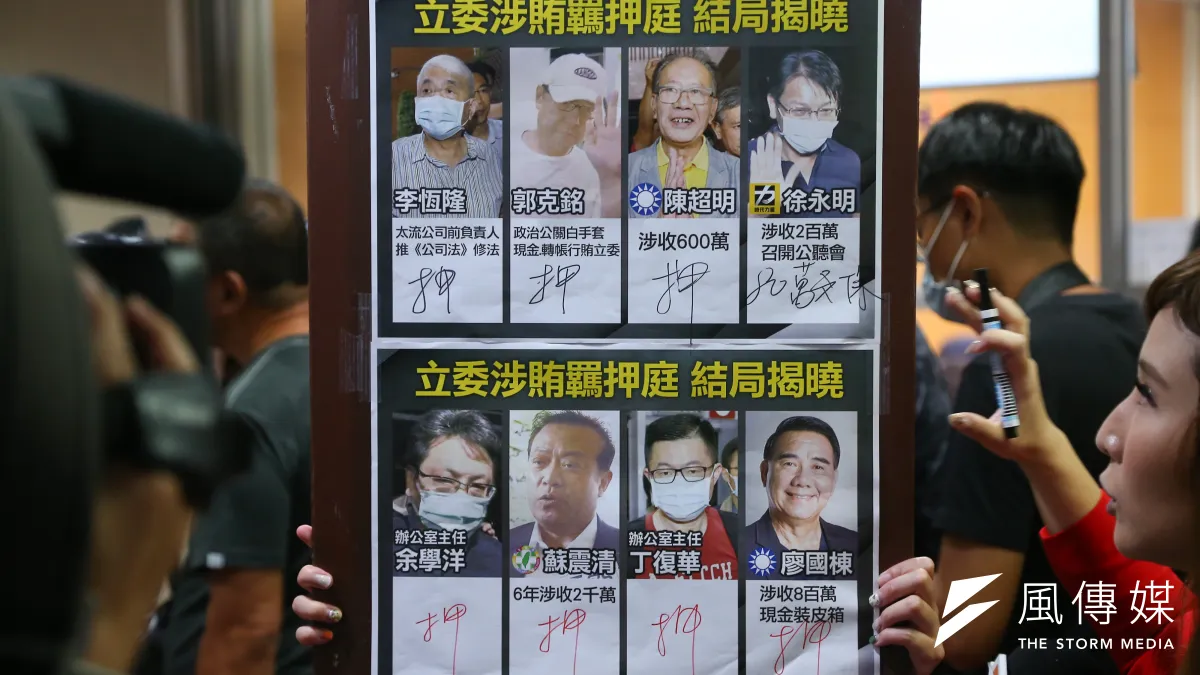 立委涉賄羈押庭 結局揭曉
李恆隆
郭克銘
陳超明
徐永明
太流公司前負責人
推《公司法》修法
政治公關白手套
現金.轉帳行賄立委
涉收600萬
涉收2百萬
召開公聽會
押
押
押
立委涉賄羈押庭 結局揭曉
辦公室主任
余學洋
蘇震清
辦公室主任
丁復華
廖國棟
6年涉收2千萬
涉收8百萬
現金裝皮箱
押
押
押
押
風傳媒
THE STORM MEDIA